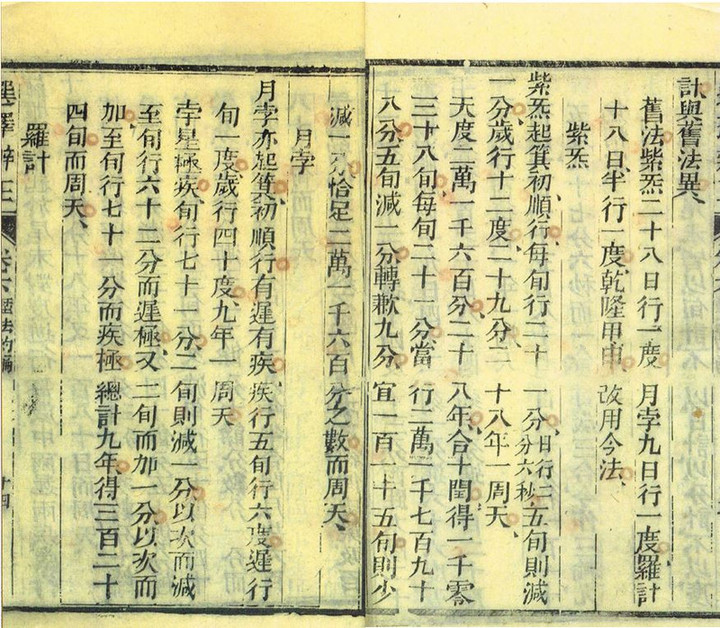 計與舊法異、
舊法紫炁二十八日行一度月孛九日行一度羅計
十八日半行一度乾隆甲申改用今法、
紫炁
紫炁起箕初順行每旬行二十一分日行二分六秒五旬減
一分歲行十二度二十九分二十八年一周天、
天度二萬一千六百分二十八年合十閏得一千零
三十八旬每旬二十一分當行二萬一千七百九十
八分五旬減一分轉歉九分宜一百一十五旬則少
減一分恰足二萬一千六百分之數而周天、
月孛
月孛亦起箕初順行有遲有疾疾行五旬行六度遲行
旬一度歲行四十度九年一周天
孛星極疾旬行七十一分二旬則減一分以次而減
至旬行六十二分而遲極又二旬而加一分以次而
加至旬行七十一分而疾極總計九年得三百二十
四旬而周天、
羅計
選擇辨正 卷六 十四